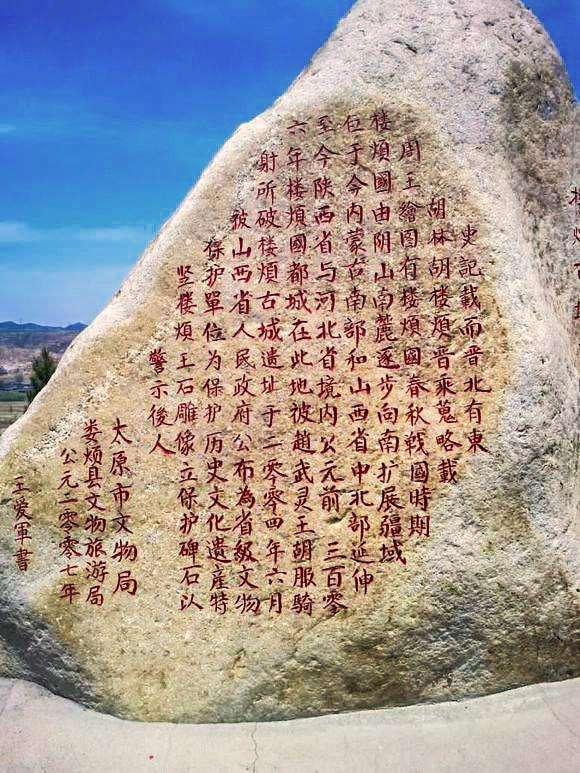 史記載而晋北有東
胡林胡楼煩晋乘蒐略載
周王繪图有楼煩國春秋戦國時期
楼煩國由阴山南麓逐步向南扩展疆域
巨于今内蒙古南部和山西省中北部延伸
至今陕西省与河北省境内公元前三百零
六年楼煩國都城在此地被趙武灵王胡服騎
射所破楼煩古城遺址于二零零四年六月
被山西省人民政府公布為省級文物
保护單位为保护历史文化遗産特
竖楼煩王石雕像立保护碑石以
警示後人
太原市文物局
娄烦县文物旅游局
公元二零零七年
王爱軍書